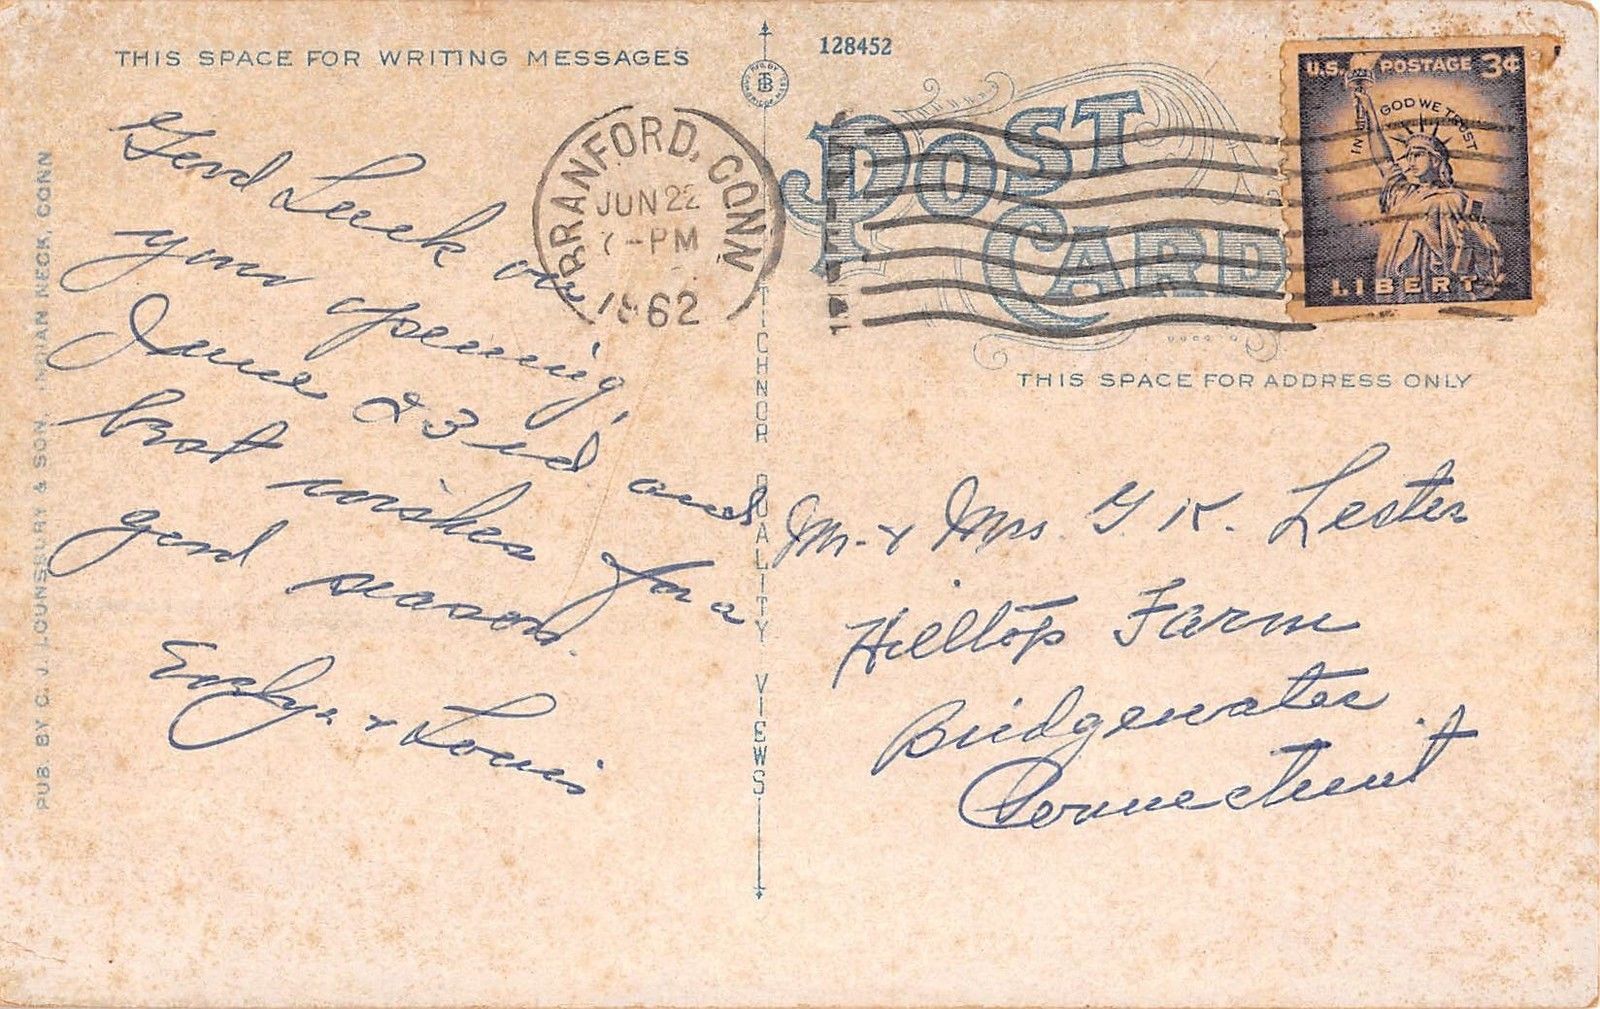 THIS SPACE FOR WRITING MESSAGES
Good Luck on
your opening,
June 23rd and
best wishes for a
good season.
& Louis
PUB. BY C. J. LOUNSBURY & SON, INDIAN NECK, CONN
BRANFORD, CONN
JUN 22
7-PM
1962
TICHNOR QUALITY VIEWS
128452
POST CARD
U.S. POSTAGE 3¢
IN GOD WE TRUST
LIBERTY
THIS SPACE FOR ADDRESS ONLY
Mr. & Mrs. G. K. Lester
Hilltop Farm
Bridgewater
Connecticut